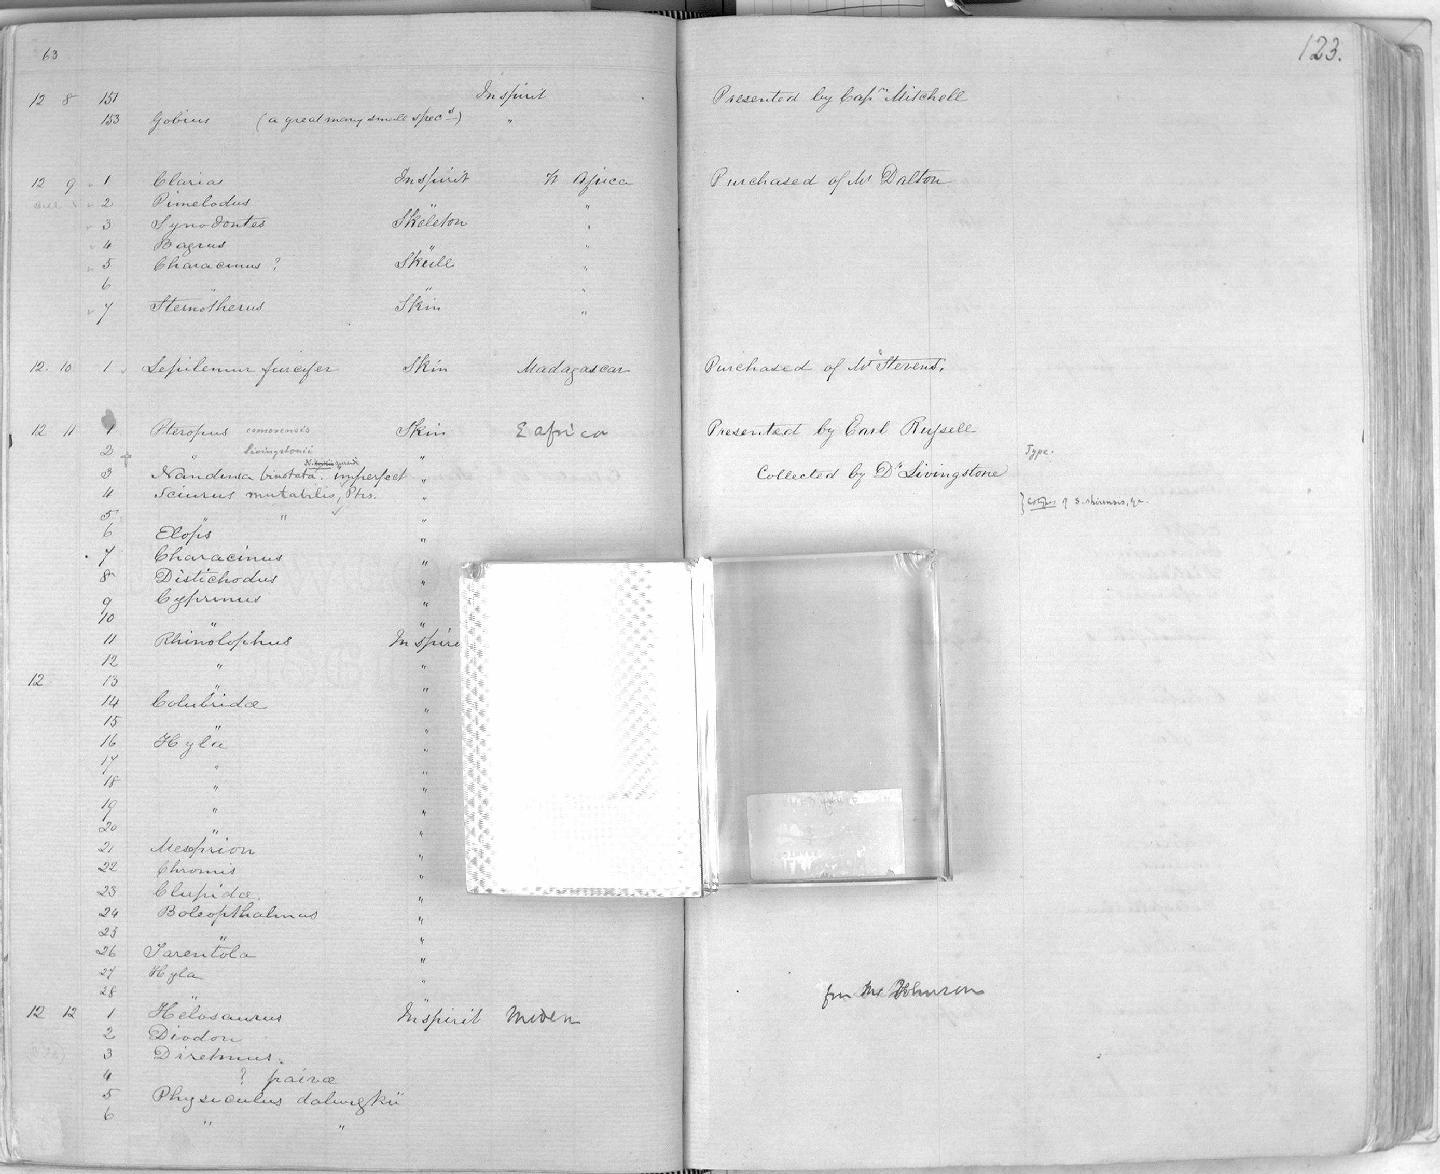 63
123.
12 8 151 In spirit Presented by Capn Mitchell
153 Gobius (a great many small specs) "
12 9 1 Clarias In spirit W Africa Purchased of Mr Dalton
2 Pimelodus " "
3 Synodontes Skeleton "
4 Bagrus " "
5 Characinus ? Skull "
6 " " "
7 Sternotherus Skin "
12. 10 1 Lepilemur furcifer Skin Madagascar Purchased of Mr Stevens.
12 11 1 Pteropus comorensis Skin E Africa Presented by Earl Russell
2 " livingstonii " Type.
3 Nandinia binotata. imperfect " Collected by Dr Livingstone
4 Sciurus mutabilis, Ptrs. " } Cotypes of S. shirensis, Gr.
5 " " "
6 Elops "
7 Characinus "
8 Distichodus "
9 Cyprinus "
10 " "
11 Rhinolophus In spiri
12 " "
12 13 " "
14 Colubridæ "
15 " "
16 Hyla "
17 " "
18 " "
19 " "
20 " "
21 Mesoprion "
22 Chromis "
23 Clupidæ "
24 Boleopthalmus "
25 " "
26 Tarentola "
27 Hyla "
28 "
fm Mr Johnson
12 12 1 Helosaurus In spirit
2 Diodon
3 Diretmus.
4 ? paivæ
5 Physiculus dalwigkii
6 " "